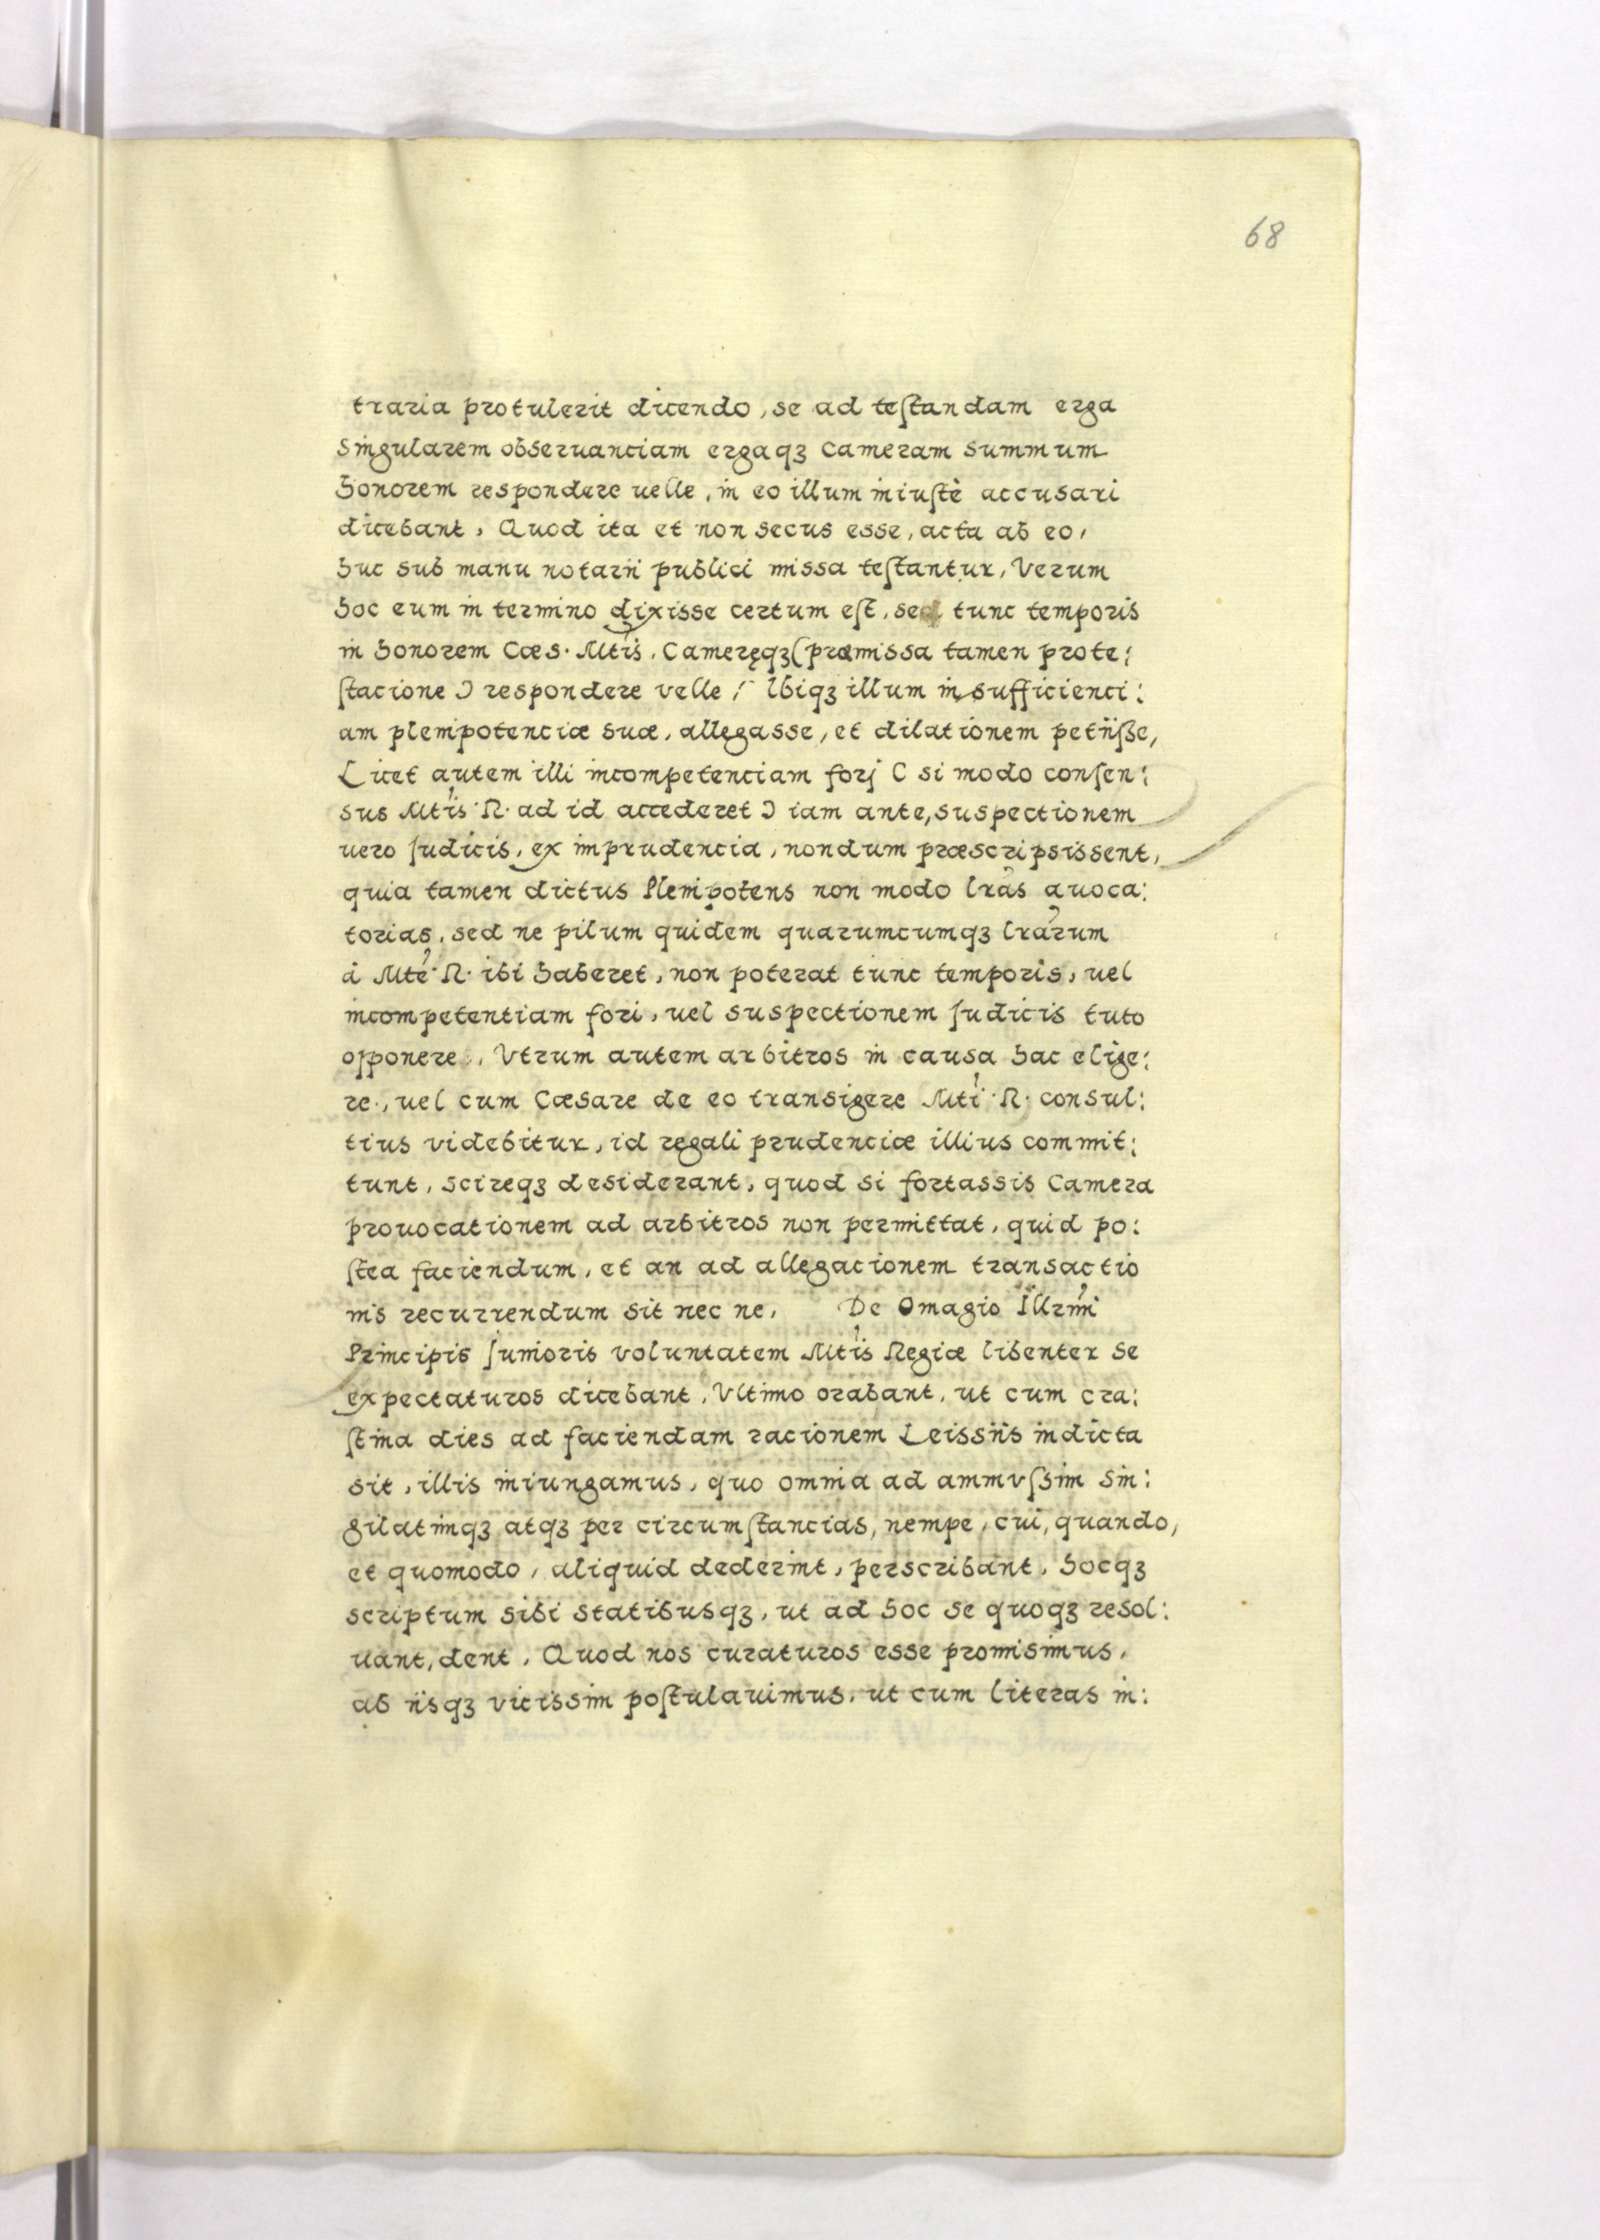 68
traria protulerit dicendo, se ad teſtandam erga
singularem obseruanciam ergaqꝫ Cameram summum
honorem respondere uelle, in eo illum iniuſtè accusari
dicebant, Quod ita et non secus esse, acta ab eo,
huc sub manu notarii publici missa teſtantur, Verum
hoc eum in termino dixisse certum eſt, sed tunc temporis
in honorem Cæs. Mtis, Cameręqꝫ (præmissa tamen prote:
ſtacione ) respondere velle, Ibiqꝫ illum insufficienci:
am plenipotenciæ suæ, allegasse, et dilationem petiiſse,
Licet autem illi incompetenciam forj ( si modo conſen:
sus Mtis R. ad id accederet ) iam ante, suspectionem
uero Judicis, ex imprudencia, nondum præscripsissent,
quia tamen dictus Plenipotens non modo lras auoca:
torias, sed ne pilum quidem quarumcumqꝫ lrarum
à Mte R. ibi haberet, non poterat tunc temporis, uel
incompetentiam fori, uel suspectionem Judicis tuto
opponere, Vtrum autem arbitros in causa hac elige:
re, uel cum Cæsare de eo transigere Mti R. consul:
tius videbitur, id regali prudenciæ illius commit:
tunt, scireqꝫ desiderant, quod si fortassis Camera
prouocationem ad arbitros non permittat, quid po:
ſtea faciendum, et an ad allegacionem transactio
nis recurrendum sit nec ne, De Omagio Illrmi
Principis Junioris voluntatem Mtis Regiæ libenter se
expectaturos dicebant, Vltimo orabant, ut cum cra:
ſtina dies ad faciendam racionem Leissiis indicta
sit, illis iniungamus, quo omnia ad ammvſsim sin:
gilatimqꝫ atqꝫ per circumſtancias, nempe, cui, quando,
et quomodo, aliquid dederint, perscribant, hocqꝫ
scriptum sibi statibusqꝫ, ut ad hoc se quoqꝫ resol:
uant, dent, Quod nos curaturos esse promisimus,
ab iisqꝫ vicissim poſtulauimus, ut cum literas in: